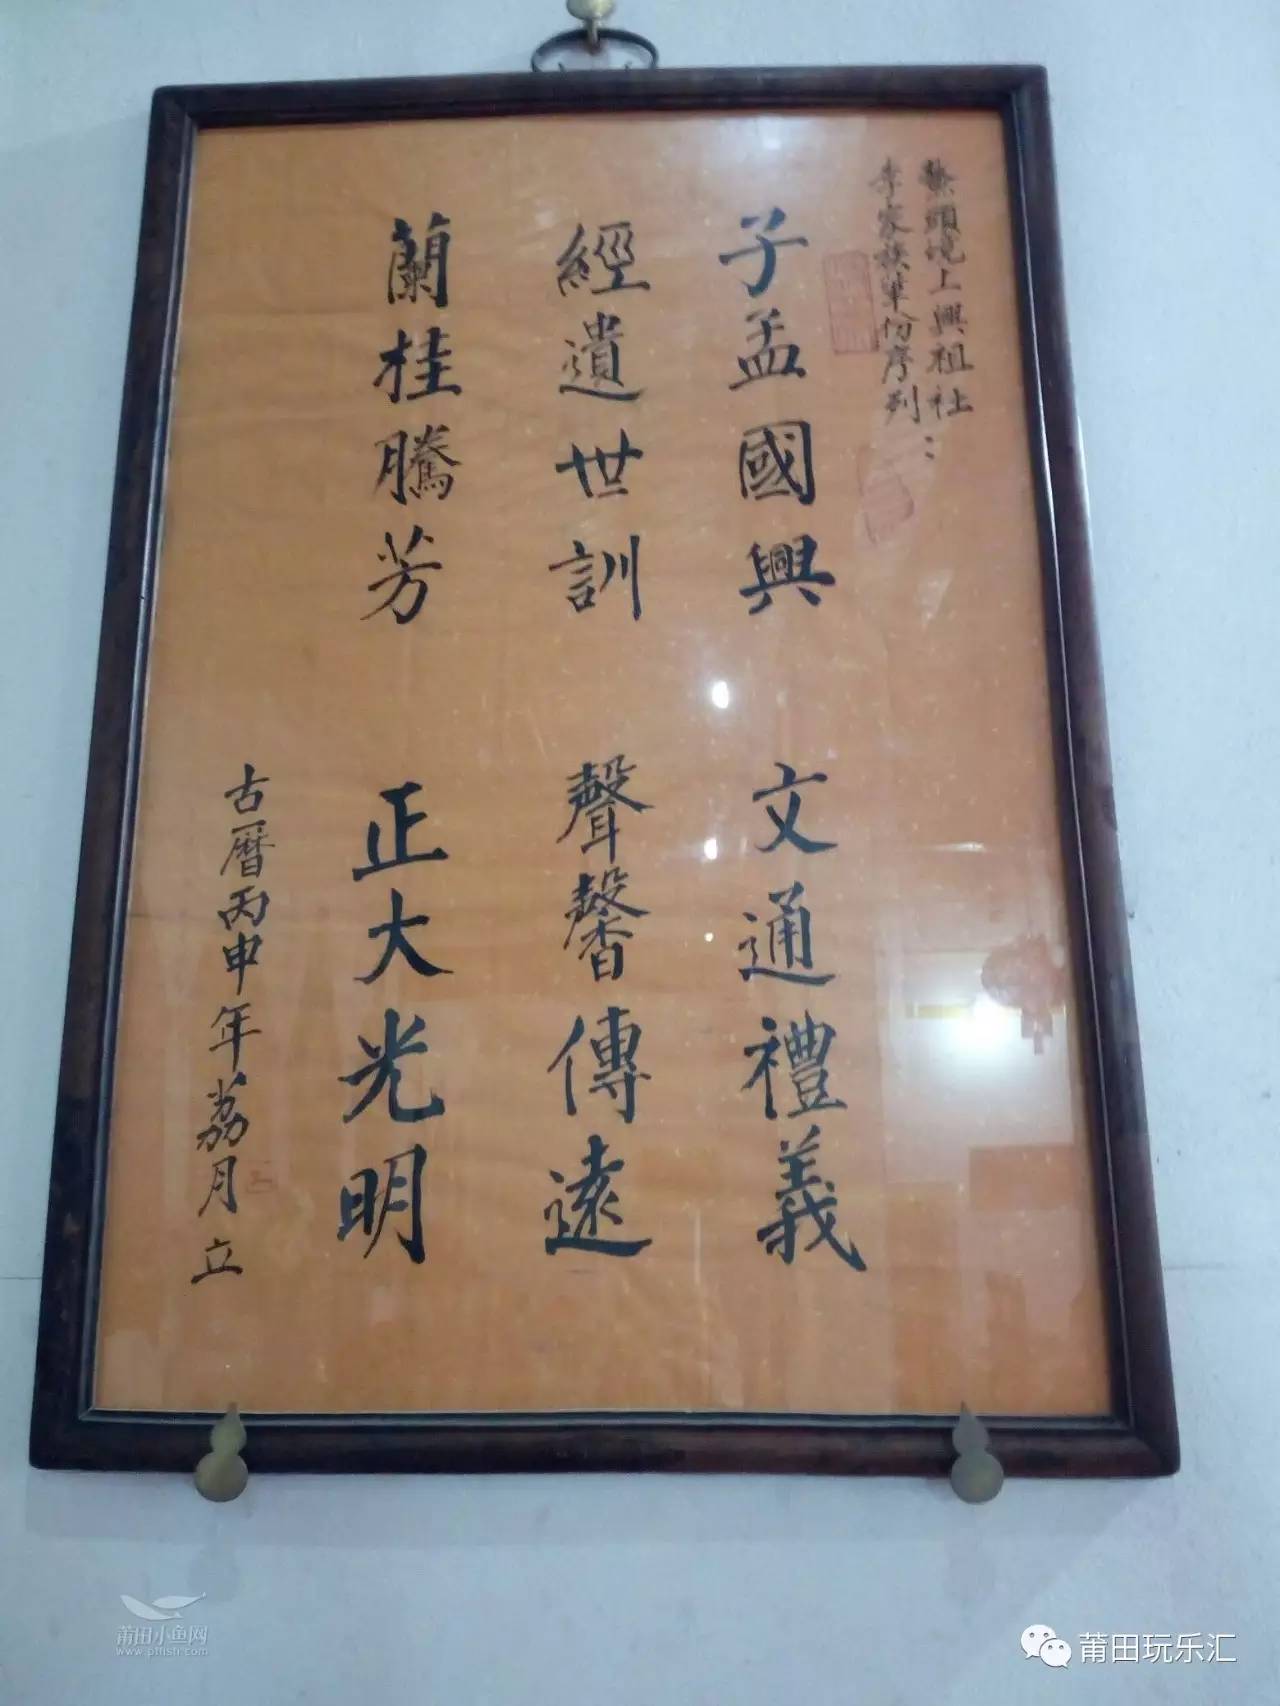 鰲頭境上興祖社
李家族輩份序列：
子孟國興　文通禮義
經遺世訓　聲馨傳遠
蘭桂騰芳　正大光明
古曆丙申年荔月立
莆田小鱼网
www.ptfish.com
莆田玩乐汇